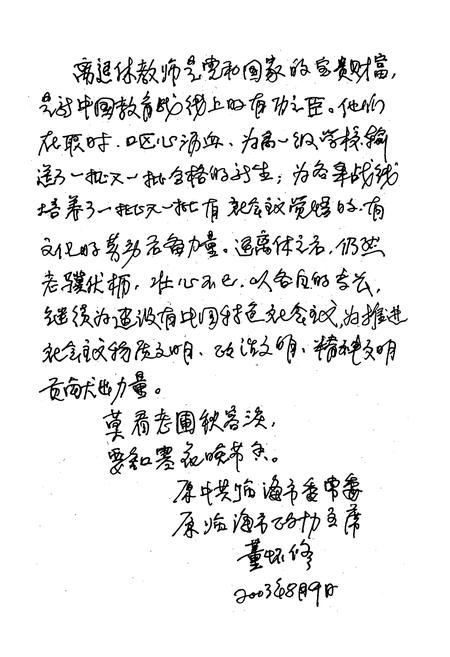 离退休教师是党和国家的宝贵财富，
是我中国教育战线上的有功之臣。他们
在职时，呕心沥血，为高一级学校输
送了一批又一批合格的新生；为各条战线
培养了一批又一批有社会主义觉悟的、有
文化的劳动后备力量。退离休之后，仍然
老骥伏枥，壮心不已，以各自的专长，
继续为建设有中国特色社会主义，为推进
社会主义物质文明、政治文明、精神文明
贡献出力量。
莫看老圃秋容淡，
要知寒花晚节香。
原中共临海市委常委
原临海市政协主席
董怀修
2003年8月9日